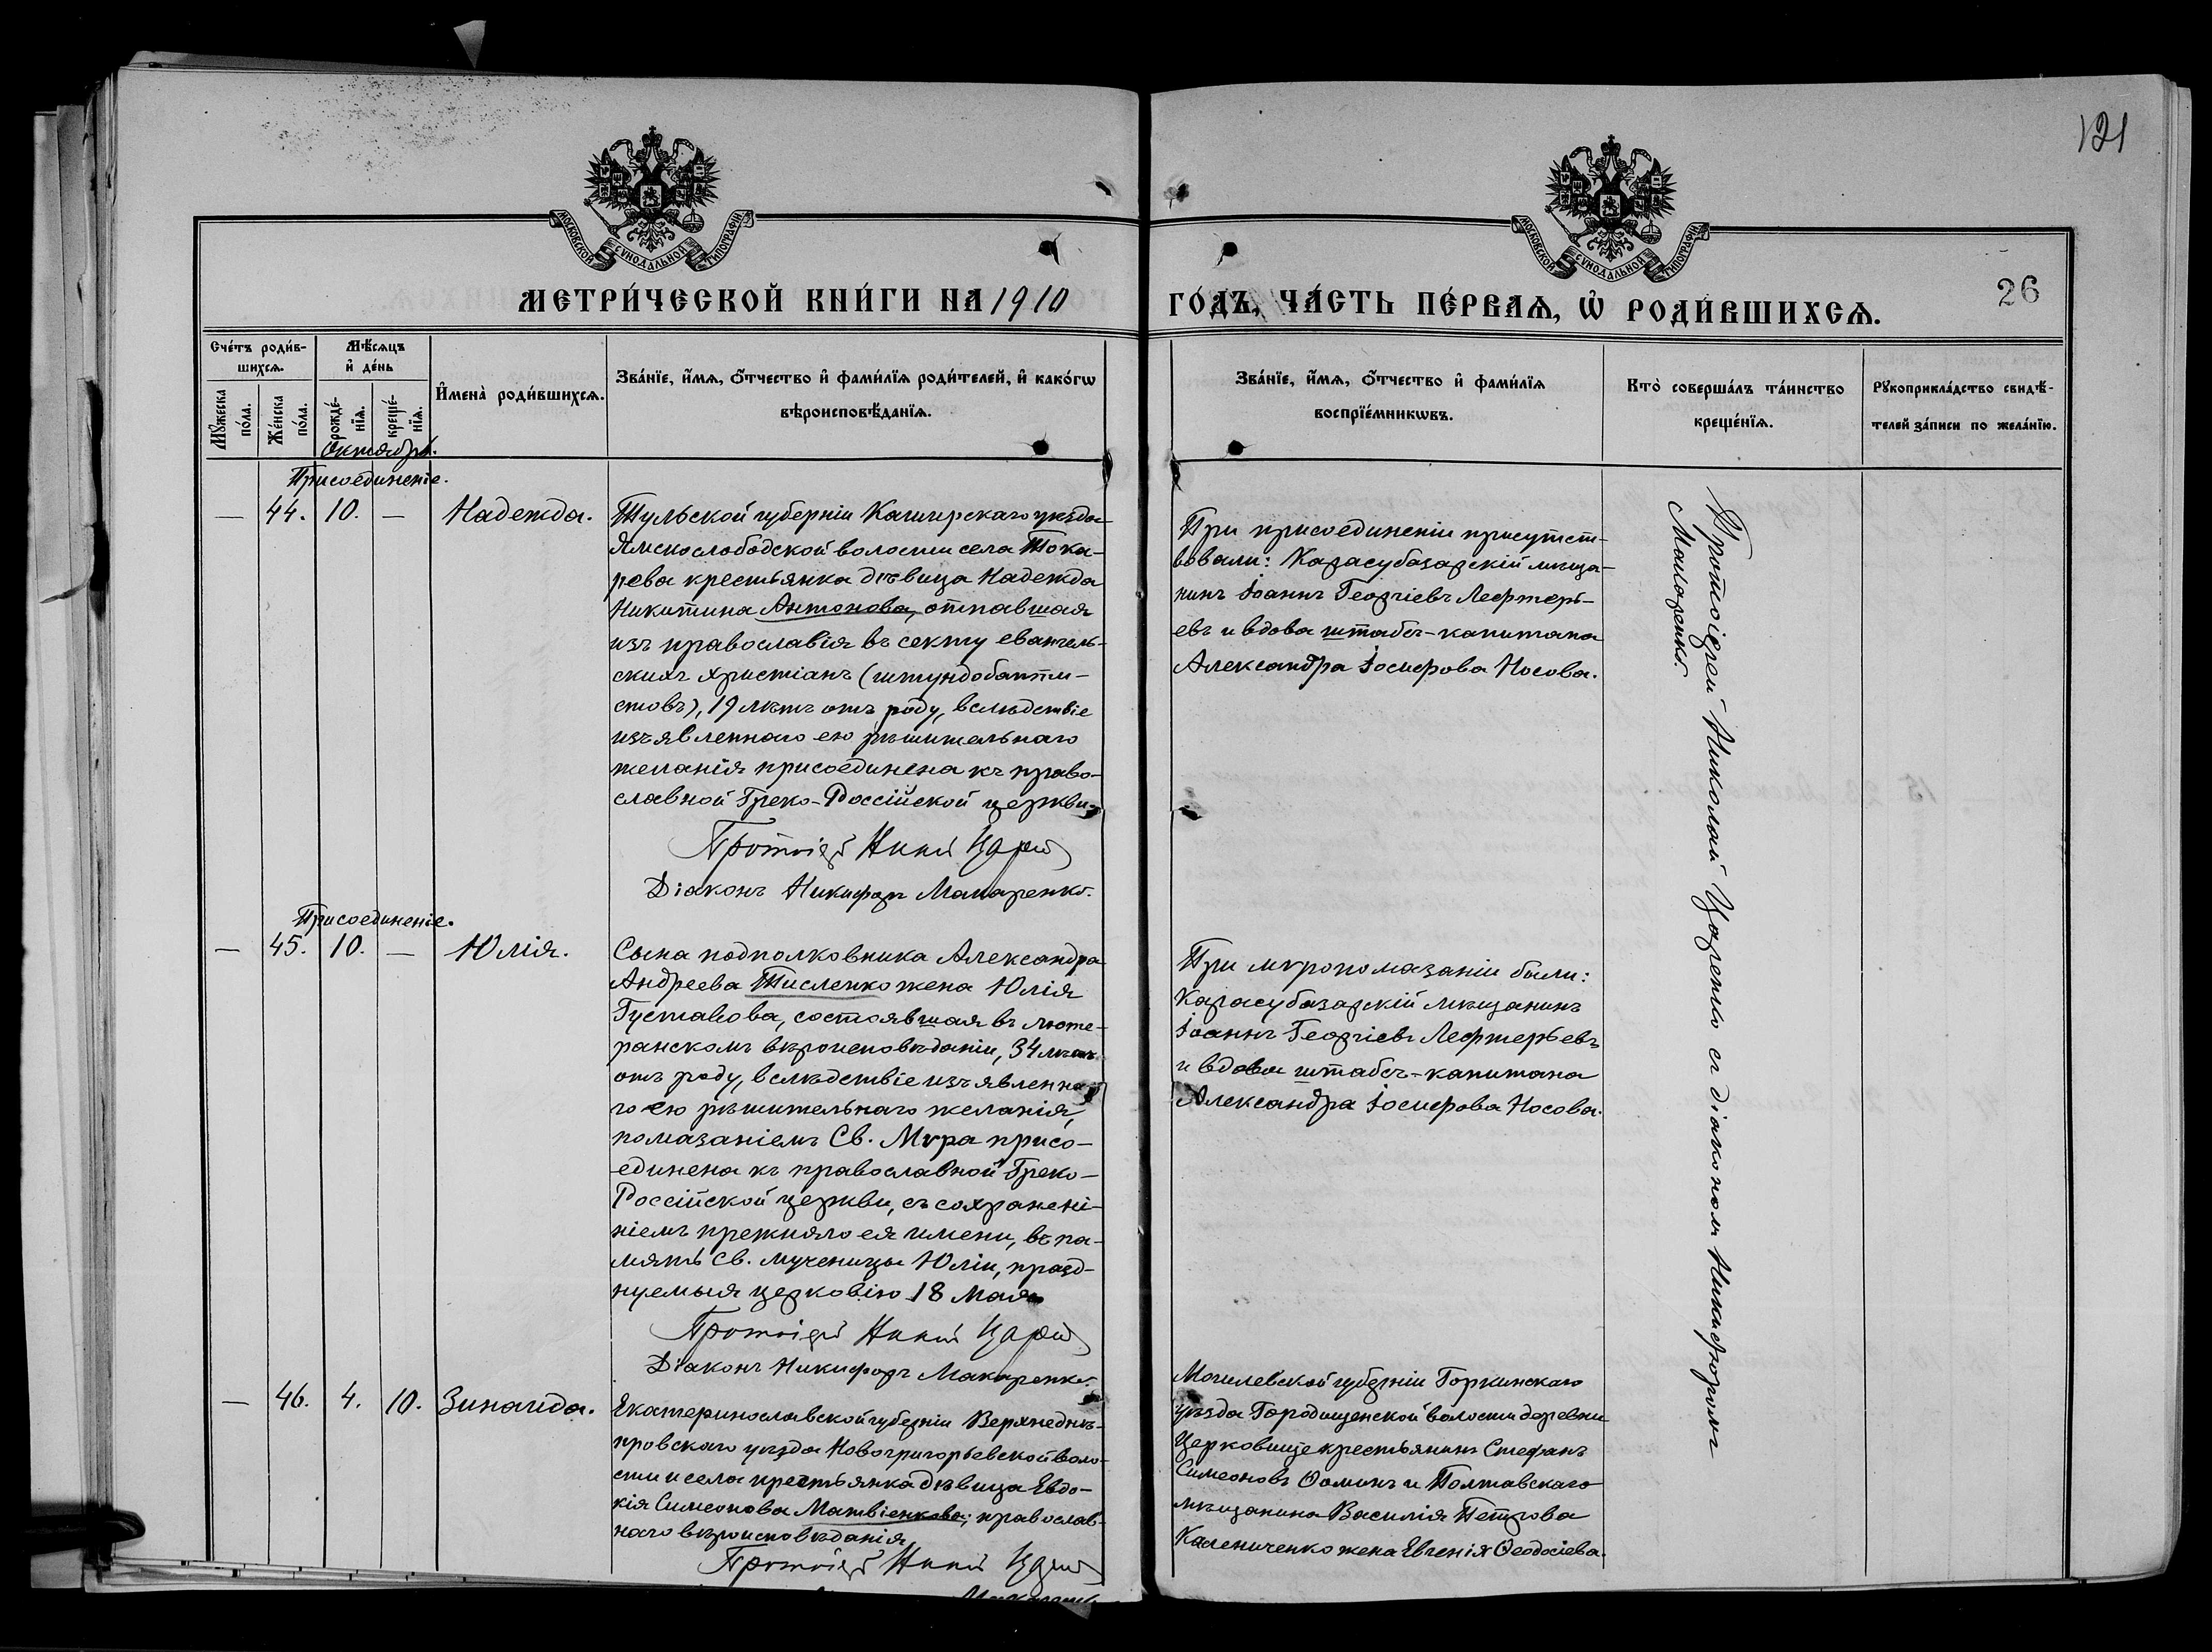 121
МОСКОВСКОЙ СѴНОДАЛЬНОЙ ТИПОГРАФІИ
МОСКОВСКОЙ СѴНОДАЛЬНОЙ ТИПОГРАФІИ
МЕТРИ́ЧЕСКОЙ КНИ́ГИ НА 1910 ГО́ДЪ, ЧА́СТЬ ПЕ́РВАѦ, Ѡ҆ РОДИ́ВШИХСѦ.
26
Сче́тъ роди́в-
шихсѧ.
Мѣ́сѧцъ
и҆ де́нь
Мꙋ́жеска
по́ла.
Же́нска
по́ла.
рожде́-
нїѧ.
креще́-
нїѧ.
И҆мена̀ роди́вшихсѧ.
Зва́нїе, и҆́мѧ, ѻ҆́тчество и҆ фами́лїѧ роди́телей, и҆ како́гѡ
вѣроисповѣ́данїѧ.
Зва́нїе, и҆́мѧ, ѻ҆́тчество и҆ фами́лїѧ
воспрїе́мникѡвъ.
Кто̀ соверша́лъ та́инство
креще́нїѧ.
Рꙋкоприкла́дство свидѣ́-
телей за́писи по жела́нїю.
Октябрь.
Присоединеніе.
— 44. 10. — Надежда.
Тульской губерніи Каширскаго уѣзда
Ямскослободской волости села Тока-
рева крестьянка дѣвица Надежда
Никитина Антонова, отпавшая
изъ православія въ секту евангель-
скихъ христіанъ (штундобапти-
стовъ), 19 лѣтъ отъ роду, вслѣдствіе
изъявленнаго ею рѣшительнаго
желанія присоединена къ право-
славной Греко-Россійской церкви.
Діаконъ Никифоръ Макаренко.
При присоединеніи присутст-
вовали: Карасубазарскій мѣща-
нинъ Іоаннъ Георгіевъ Лефтерь-
евъ и вдова штабсъ-капитана
Александра Іосифова Носова.
Протоіерей Николай Царенко съ діакономъ Никифоромъ
Макаренко.
Присоединеніе.
— 45. 10. — Юлія.
Сына подполковника Александра
Андреева Тисленко жена Юлія
Густавова, состоявшая въ люте-
ранскомъ вѣроисповѣданіи, 34 лѣтъ
отъ роду, вслѣдствіе изъявленна-
го ею рѣшительнаго желанія,
помазаніемъ Св. Мѵра присо-
единена къ православной Греко-
Россійской церкви, съ сохранені-
ніемъ прежняго ея имени, въ па-
мять Св. мученицы Юліи, празд-
нуемыя церковію 18 Мая.
Діаконъ Никифоръ Макаренко.
При мѵропомазаніи были:
Карасубазарскій мѣщанинъ
Іоаннъ Георгіевъ Лефтерьевъ
и вдова штабсъ-капитана
Александра Іосифова Носова.
— 46. 4. 10. Зинаида.
Екатеринославской губерніи Верхнеднѣ-
провскаго уѣзда Новогригорьевской воло-
сти и села крестьянка дѣвица Евдо-
кія Симеонова Матвіенкова, православ-
наго вѣроисповѣданія
Могилевской губерніи Горкинскаго
уѣзда Городищенской волости деревни
Церковище крестьянинъ Стефанъ
Симеоновъ Ѳоминъ и Полтавскаго
мѣщанина Василія Петрова
Калениченко жена Евгенія Ѳеодосіева.